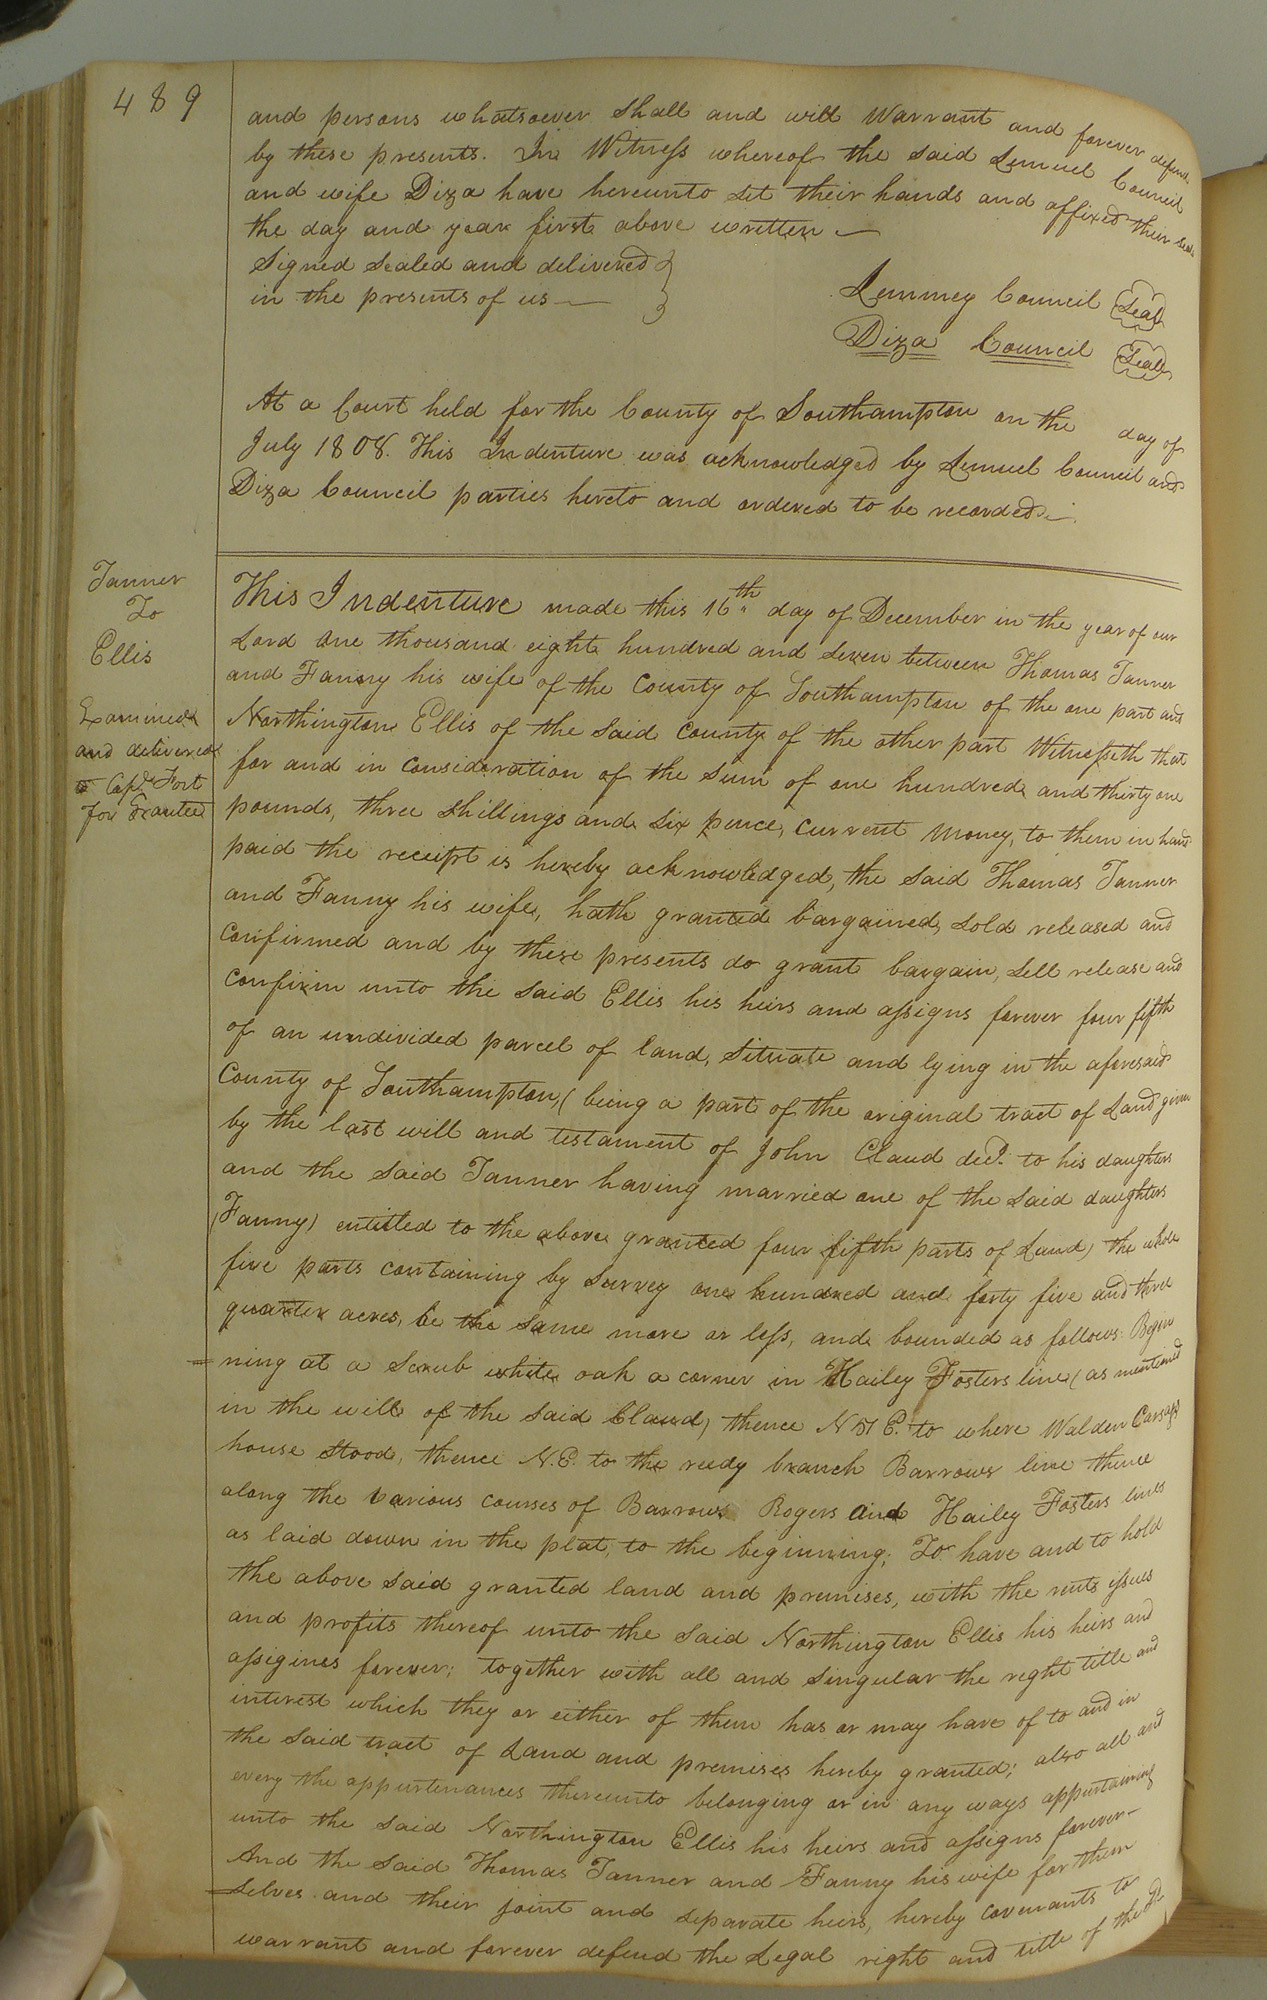 489
and persons whatsoever shall and will Warrant and forever defend
by these presents. In Witness whereof the said Lemuel Council
and wife Diza have hereunto set their hands and affixed their seals
the day and year first above written —
Signed Sealed and delivered }
in the presents of us — }
Lemmey Council Seal
Diza Council Seal
At a Court held for the County of Southampton on the day of
July 1808. This Indenture was acknowledged by Lemuel Council and
Diza Council parties hereto and ordered to be recorded.—
Tanner
To
Ellis
Examined
and delivered
to Capt. Fort
for Grantee
This Indenture made this 16th day of December in the year of our
Lord One thousand eight hundred and Seven between Thomas Tanner
and Fanny his wife of the County of Southampton of the one part and
Northington Ellis of the said County of the other part Witnesseth that
for and in Consideration of the Sum of one hundred and thirty one
pounds, three shillings and six pence, Current Money, to them in hand
paid the receipt is hereby acknowledged, the said Thomas Tanner
and Fanny his wife, hath granted bargained, sold released and
confirmed and by these presents do grant bargain, sell release and
confirm unto the said Ellis his heirs and assigns forever four fifth
of an undivided parcel of land, Situate and lying in the aforesaid
County of Southampton, (being a part of the original tract of Land given
by the last will and testament of John Claud decd. to his daughters
and the said Tanner having married one of the said daughters
(Fanny) entitled to the above granted four fifth parts of Land) the whole
five parts containing by Survey one hundred and forty five and three
quarter acres, be the same more or less, and bounded as follows: Begin
ning at a Scrub white oak a corner in Hailey Fosters line (as mentioned
in the will of the said Claud) thence N 51 E. to where Walden
house stood, thence N.E. to the reedy branch Barrows line thence
along the various courses of Barrows Rogers and Hailey Fosters lines
as laid down in the plat, to the beginning; To have and to hold
the above said granted land and premises, with the rents issues
and profits thereof unto the said Northington Ellis his heirs and
assigines forever; together with all and singular the right title and
interest which they or either of them has or may have of to and in
the said tract of Land and premises hereby granted; also all and
every the appurtenances thereunto belonging or in any ways appertaining
unto the said Northington Ellis his heirs and assigns forever—
And the said Thomas Tanner and Fanny his wife for them
selves and their joint and separate heirs, hereby covenants to
warrant and forever defend the Legal right and title of the sd